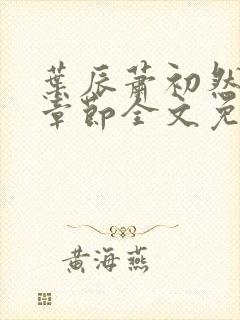 葉辰蕭初然
章節全文免
黃海燕